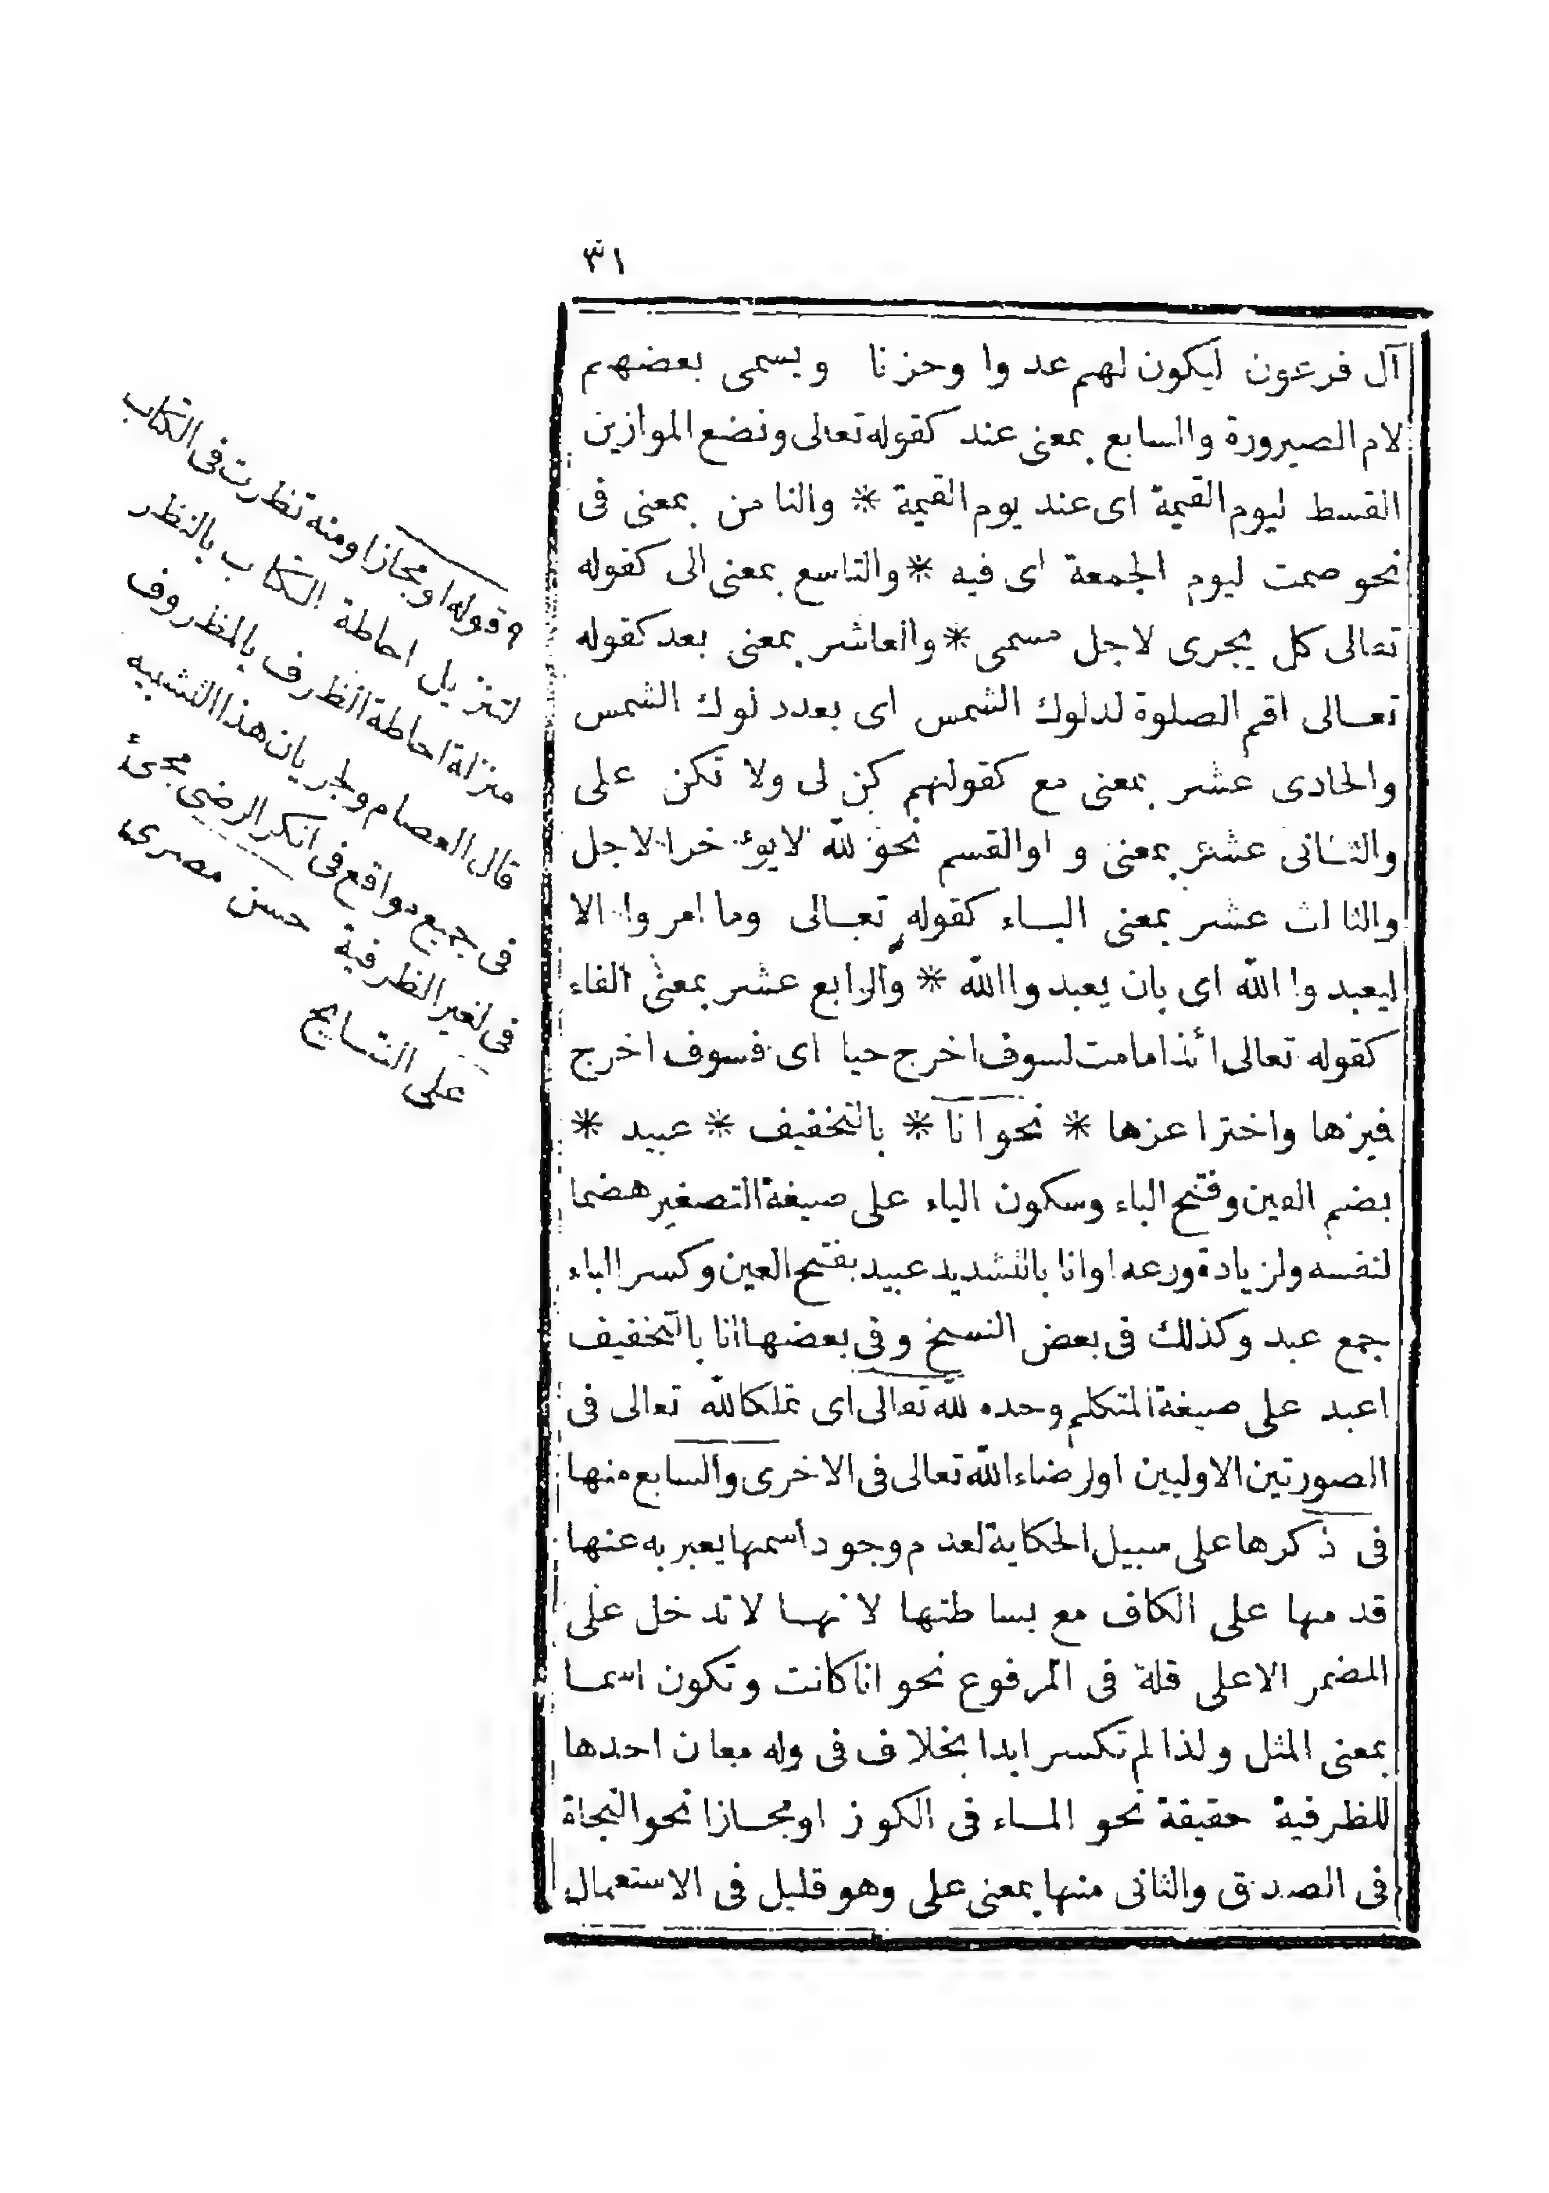 ٣١
آل فرعون ليكون لهم عدوا وحزنا ويسمى بعضهم
لام الصيرورة والسابع بمعنى عند كقوله تعالى ونضع الموازين
القسط ليوم القيمة اى عند يوم القيمة * والثامن بمعنى فى
نحو صمت ليوم الجمعة اى فيه * والتاسع بمعنى الى كقوله
تعالى كل يجرى لاجل مسمى * والعاشر بمعنى بعد كقوله
تعالى اقم الصلوة لدلوك الشمس اى بعد دلوك الشمس
والحادى عشر بمعنى مع كقولهم كن لى ولا تكن على
والثانى عشر بمعنى واو القسم نحو لله لا يؤخر الاجل
والثالث عشر بمعنى الباء كقوله تعالى وما امروا الا
ليعبدوا الله اى بان يعبدوا الله * والرابع عشر بمعنى الفاء
كقوله تعالى أئذا مامت لسوف اخرج حيا اى فسوف اخرج
* نحو انا * بالتخفيف * عبيد *
بضم العين وفتح الباء وسكون الياء على صيغة التصغير هضما
لنفسه ولزيادة ورعه او انا بالتشديد عبيد بفتح العين وكسر الباء
جمع عبد وكذلك فى بعض النسخ وفى بعضها انا بالتخفيف
اعبد على صيغة المتكلم وحده لله تعالى اى تملكا لله تعالى فى
الصورتين الاوليين او لرضاء الله تعالى فى الاخرى والسابع منها
فى ذكرها على سبيل الحكاية لعدم وجود اسمها يعبر به عنها
قدمها على الكاف مع بساطتها لانها لا تدخل على
المضمر الاعلى قلة فى المرفوع نحو انا كانت وتكون اسما
بمعنى المثل ولذا لم تكسر ابدا بخلاف فى وله معان احدها
للظرفية حقيقة نحو الماء فى الكوز او مجازا نحو النجاة
فى الصدق والثانى منها بمعنى على وهو قليل فى الاستعمال
٩ قوله او مجازا ومنه نظرت فى الكتاب
لتنزيل احاطة الكتاب بالنظر
منزلة احاطة الظرف بالمظروف
قال العصام ولجريان هذا التشبيه
فى جميع مواقع فى انكر الرضى مجئ
فى لغير الظرفية حسن مصرى
على النتايج